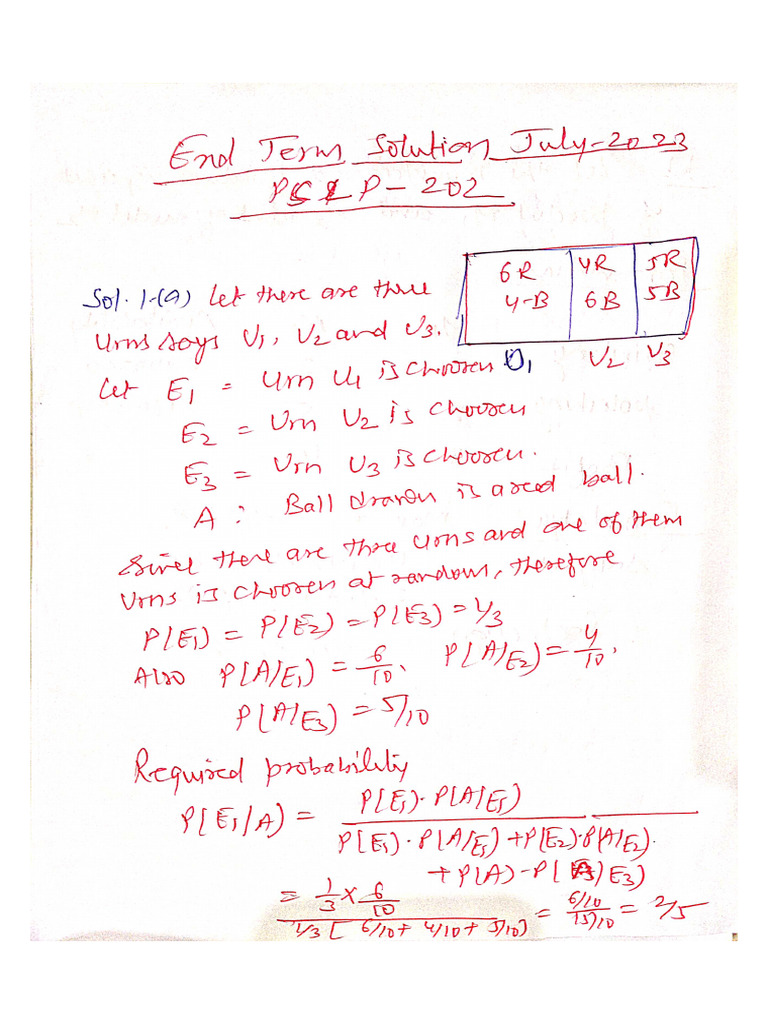 End Term Solution July-2023
P P-202
6R 4R 5R
4-B 6B 5B
Sol. 1.(a) Let there are three
Urns says U1, U2 and U3.
U1 U2 U3
Let E1 = Urn U1 is choosen
E2 = Urn U2 is choosen
E3 = Urn U3 is choosen.
A : Ball drawn is a red ball.
Since there are three urns and one of them
Urns is choosen at random, therefore
P(E1) = P(E2) = P(E3) = 1/3
Also P(A/E1) = 6/10, P(A/E2) = 4/10,
P(A/E3) = 5/10
Required probability
P(E1/A) = P(E1)·P(A/E1)
P(E1)·P(A/E1) + P(E2)·P(A/E2)·
+ P(A)-P( /E3)
= 1/3 × 6/10
1/3 [ 6/10 + 4/10 + 5/10) = 6/10 / 15/10 = 2/5